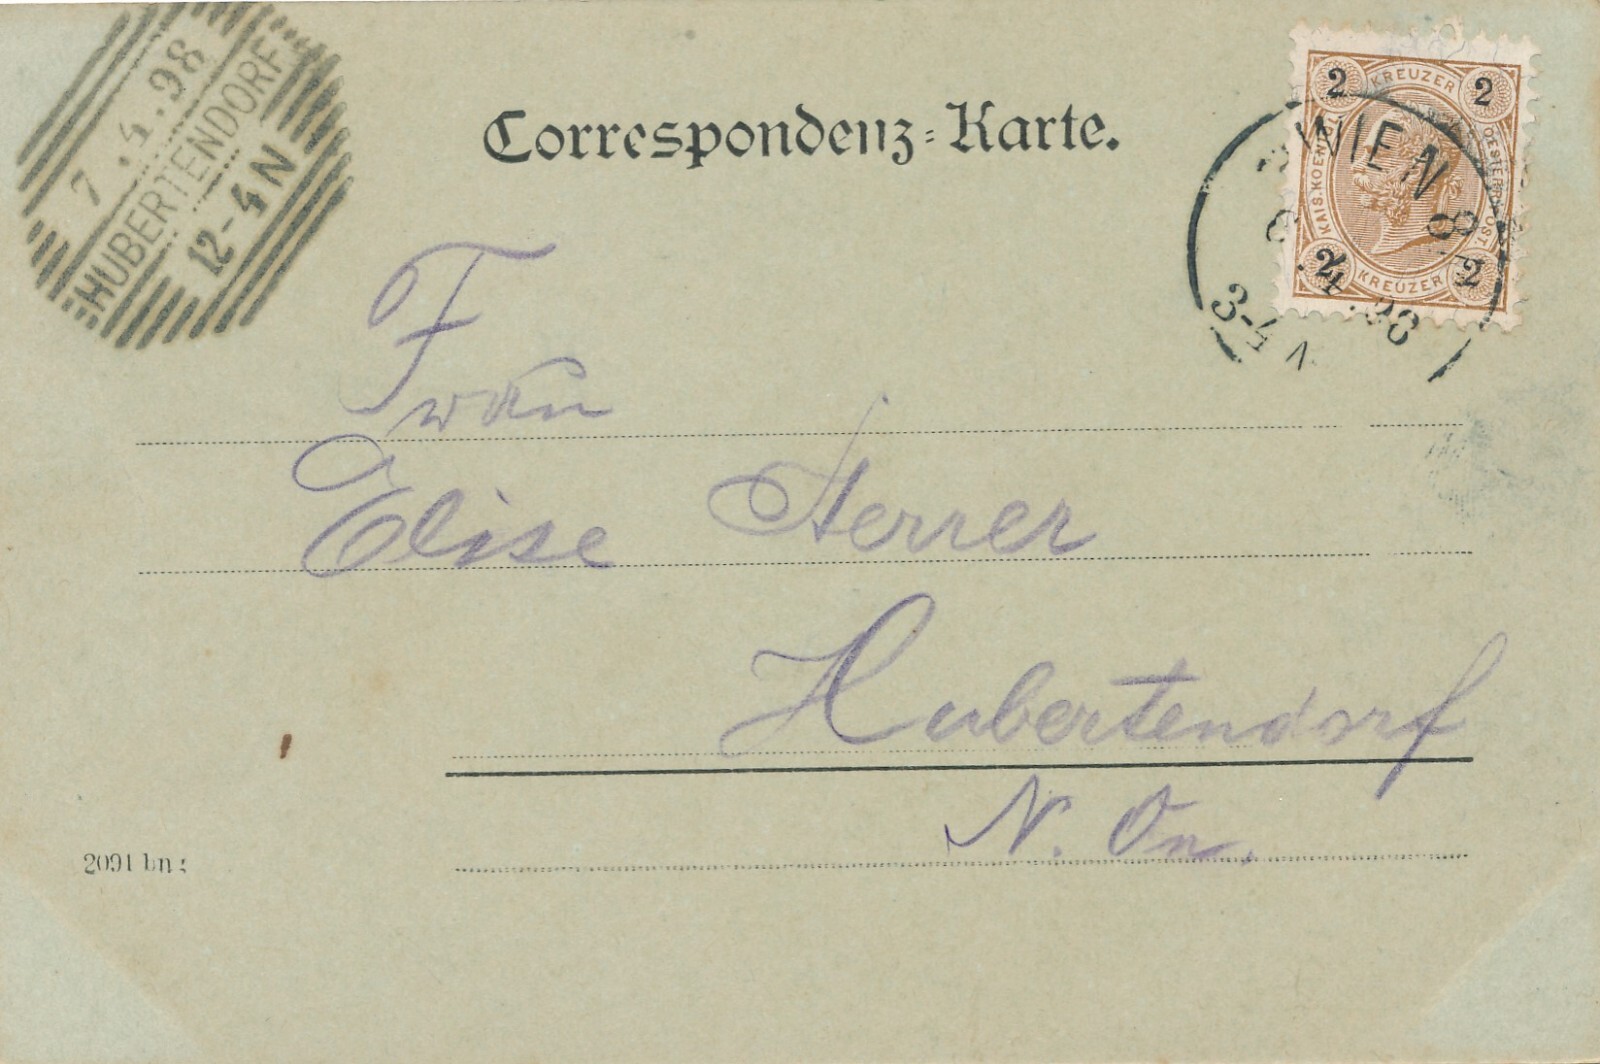 7.4.98
HUBERTENDORF
12-4N
Correspondenz-Karte.
2 KREUZER 2
KAIS. KOEN. OESTERR. POST.
2 KREUZER 2
WIEN
3-4 V
Frau
Elise Sterrer
Hubertendorf
N. Oe.
2091 bn: